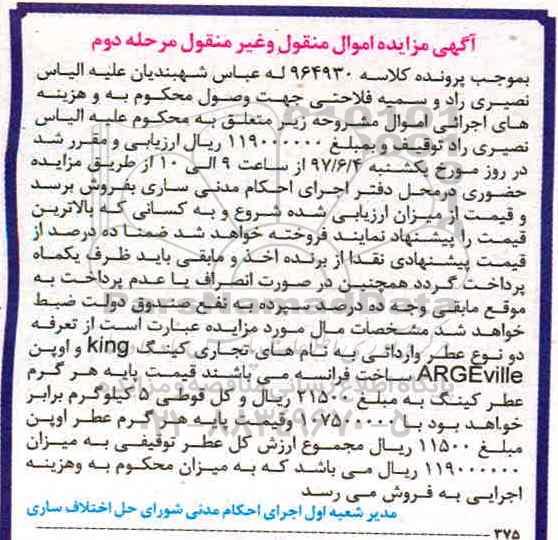 آگهی مزایده اموال منقول وغیر منقول مرحله دوم
بموجب پرونده کلاسه ۹۶۴۹۳۰ له عباس شهبندیان علیه الیاس
نصیری راد و سمیه فلاحتی جهت وصول محکوم به و هزینه
های اجرائی اموال مشروحه زیر متعلق به محکوم علیه الیاس
نصیری راد توقیف و بمبلغ ۱۱۹۰۰۰۰۰۰ ریال ارزیابی و مقرر شد
در روز مورخ یکشنبه ۹۷/۶/۴ از ساعت ۹ الی ۱۰ از طریق مزایده
حضوری درمحل دفتر اجرای احکام مدنی ساری بفروش برسد
و قیمت از میزان ارزیابی شده شروع و به کسانی که بالاترین
قیمت را پیشنهاد نمایند فروخته خواهد شد ضمنا ده درصد از
قیمت پیشنهادی نقدا از برنده اخذ و مابقی باید ظرف یکماه
پرداخت گردد همچنین در صورت انصراف یا عدم پرداخت به
موقع مابقی وجه ده درصد سپرده به نفع صندوق دولت ضبط
خواهد شد مشخصات مال مورد مزایده عبارت است از تعرفه
دو نوع عطر وارداتی به نام های تجاری کینگ king و اوپن
ARGEville ساخت فرانسه می باشند قیمت پایه هر گرم
عطر کینگ به مبلغ ۲۱۵۰۰ ریال و کل قوطی ۵ کیلوگرم برابر
خواهد بود با ۱۰۷۵۰۰۰۰۰ وقیمت پایه هر گرم عطر اوپن
مبلغ ۱۱۵۰۰ ریال مجموع ارزش کل عطر توقیفی به میزان
۱۱۹۰۰۰۰۰۰ ریال می باشد که به میزان محکوم به وهزینه
اجرایی به فروش می رسد
مدیر شعبه اول اجرای احکام مدنی شورای حل اختلاف ساری
۳۷۵
ParsNamadData
پایگاه اطلاع رسانی مناقصه و مزایده
۰۲۱-۸۸۳۴۹۶۷۰-۵